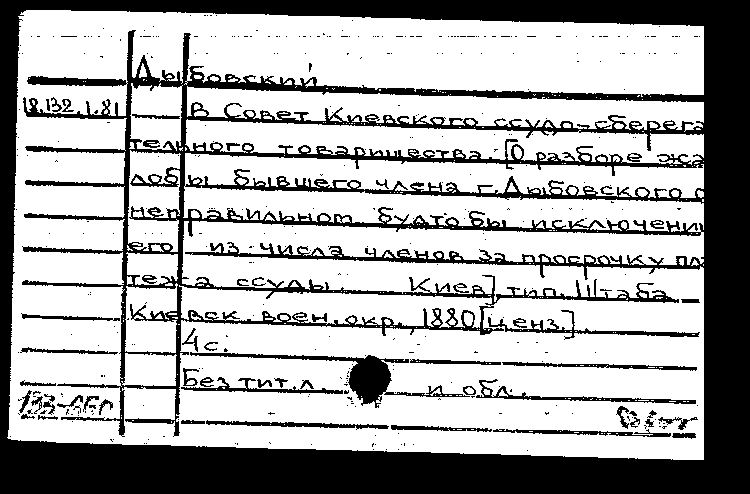 Дыбовский,
18.132.1.81 В Совет Киевского ссудо-сберега
тельного товарищества. [О разборе жа
лобы бывшего члена г. Дыбовского о
неправильном будто бы исключении
его из числа членов за просрочку пла
тежа ссуды. Киев], тип. Штаба
Киевск. воен. окр., 1880 [ценз.].
4 с.
Без тит. л. и обл.